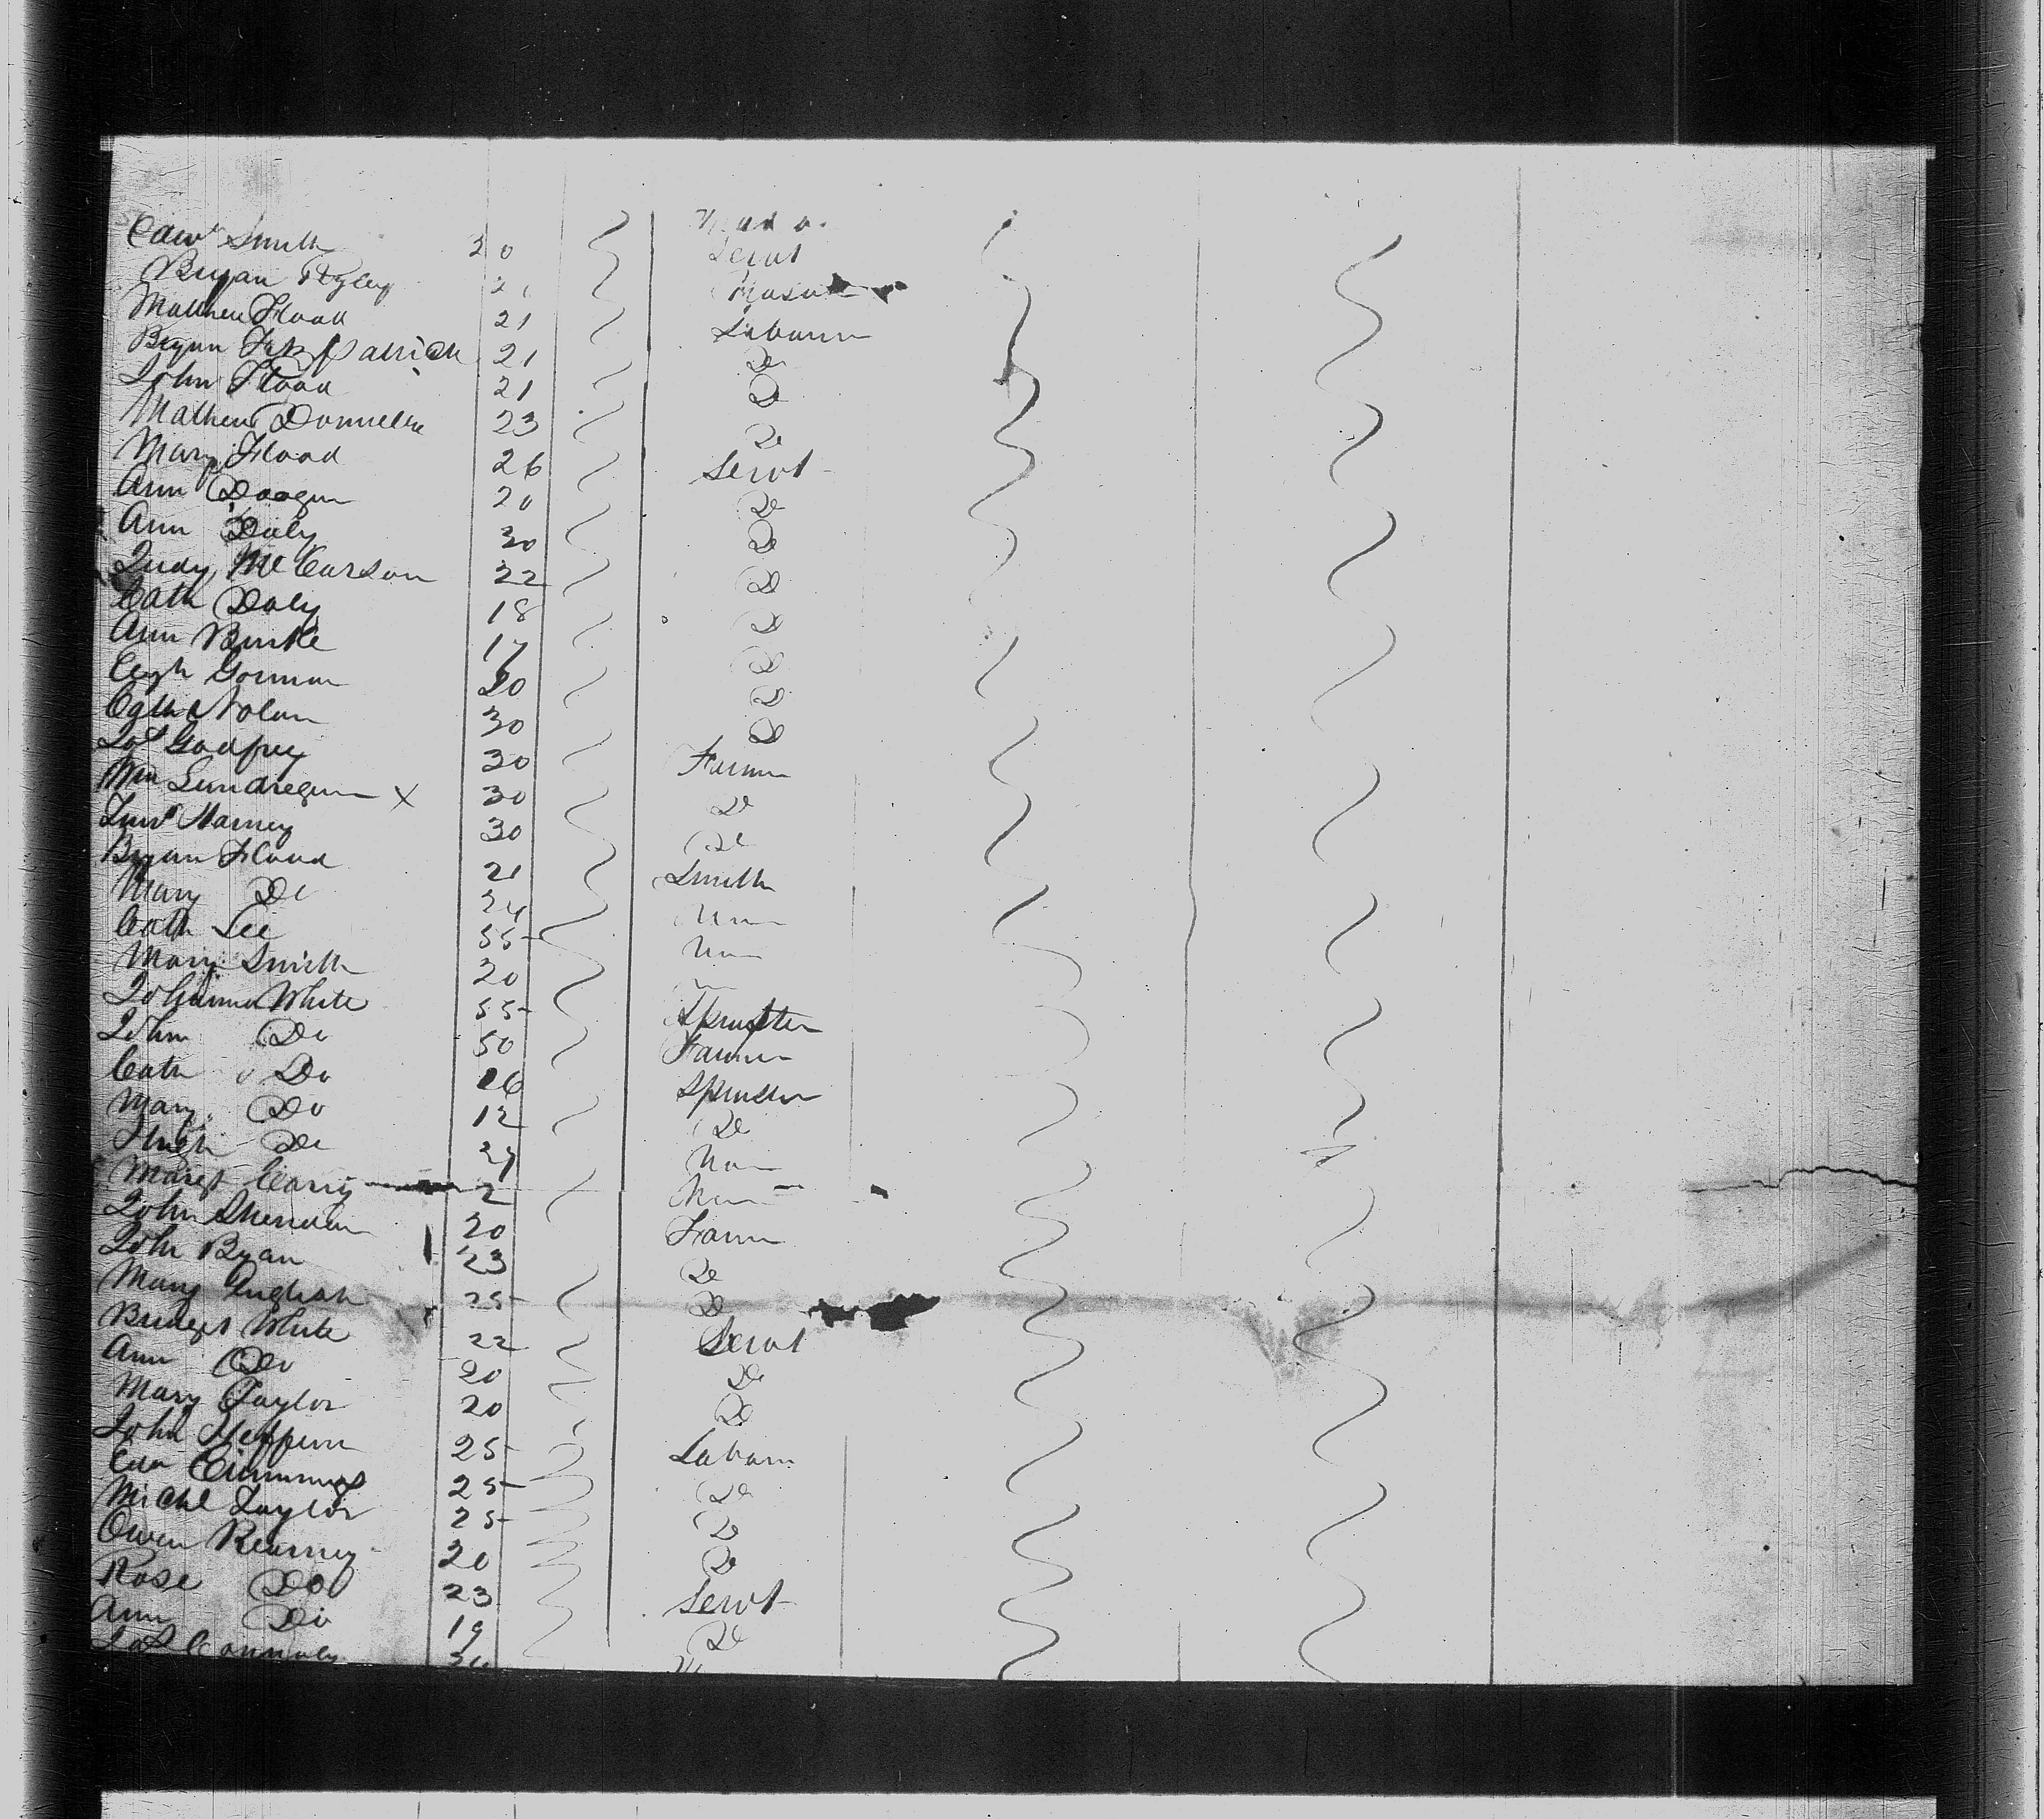 Edwd Smith 20 Servt
Bryan Ryley 21 Mason
Mathew Flood 21 Labourer
Bryan Fitzpatrick 21 Do
John Flood 21 Do
Mathew Donnelly 23 Do
Mary Flood 26 Servt
Ann Doogan 20 Do
Ann Daly 30 Do
Judy McCarson 22 Do
Cath Daly 18 Do
Ann Burke 17 Do
Gorman 20 Do
Cath Nolan 30 Do
Godfrey 30 Farmer
Wm Lundregan X 30 Do
Harney 30 Do
Bryan Flood 21 Smith
Mary Do 24 None
Cath Lee 55 None
Mary Smith 20
Johanna White 55 Spinster
John Do 50 Farmer
Cath Do 16 Spinster
Mary Do 12 Do
Hugh Do None
Margt Carry 2 None
John Sheridan 20 Farmer
John Ryan 23 Do
Mary English 25 Do
Bridget White 22 Servt
Ann Do 20 Do
Mary Taylor 20 Do
John Heffernn 25 Labourer
Cummings 25 Do
Michl Taylor 25 Do
Owen Kearney 20 Do
Rose Do 23 Servt
Ann Do 19 Do
Connoly